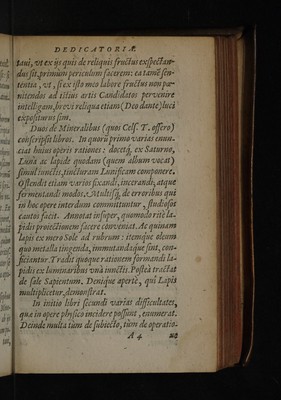 DEDICATORIÆ
taui, vt ex ijs quis de reliquis fructus exspectan-
dus sit, primùm periculum facerem: ea tamẽ sen-
tentia, vt, si ex isto meo labore fructus non pœ-
nitendos ad istius artis Candidatos peruenire
intelligam, breui reliqua etiam (Deo dante) luci
expositurus sim.
Duos de Mineralibus (quos Cels. T. offero)
conscripsit libros. In quorũ primo varias enun-
ciat huius operis rationes: docetq́, ex Saturno,
Luna ac lapide quodam (quem album vocat)
simul iunctis, tincturam Lunificam componere.
Ostendit etiam varios fixandi, incerandi, atque
fermentandi modos. Multisq́, de erroribus qui
in hoc opere interdum committuntur, studiosos
cautos facit. Annotat insuper, quomodo ritè la-
pidis proiectionem facere conueniat. Ac quinam
lapis ex mero Sole ad rubrum: itemque alcano
quo metalla tingenda, immutandaque sint, con-
ficiantur. Tradit quoque rationem formandi la-
pidis ex luminaribus vnà iunctis. Posteà tractat
de sale Sapientum. Denique apertè, quî Lapis
multiplicetur, demonstrat.
In initio libri secundi varias difficultates,
quæ in opere physico incidere possunt, enumerat.
Deinde multa tùm de subiecto, tùm de operatio-
A 4